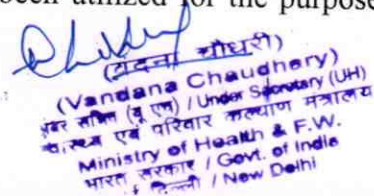 been utilized for the purpose
(वंदना चौधरी)
(Vandana Chaudhary)
अवर सचिव (यू एच) / Under Secretary (UH)
स्वास्थ्य एवं परिवार कल्याण मंत्रालय
Ministry of Health & F.W.
भारत सरकार / Govt. of India
दिल्ली / New Delhi